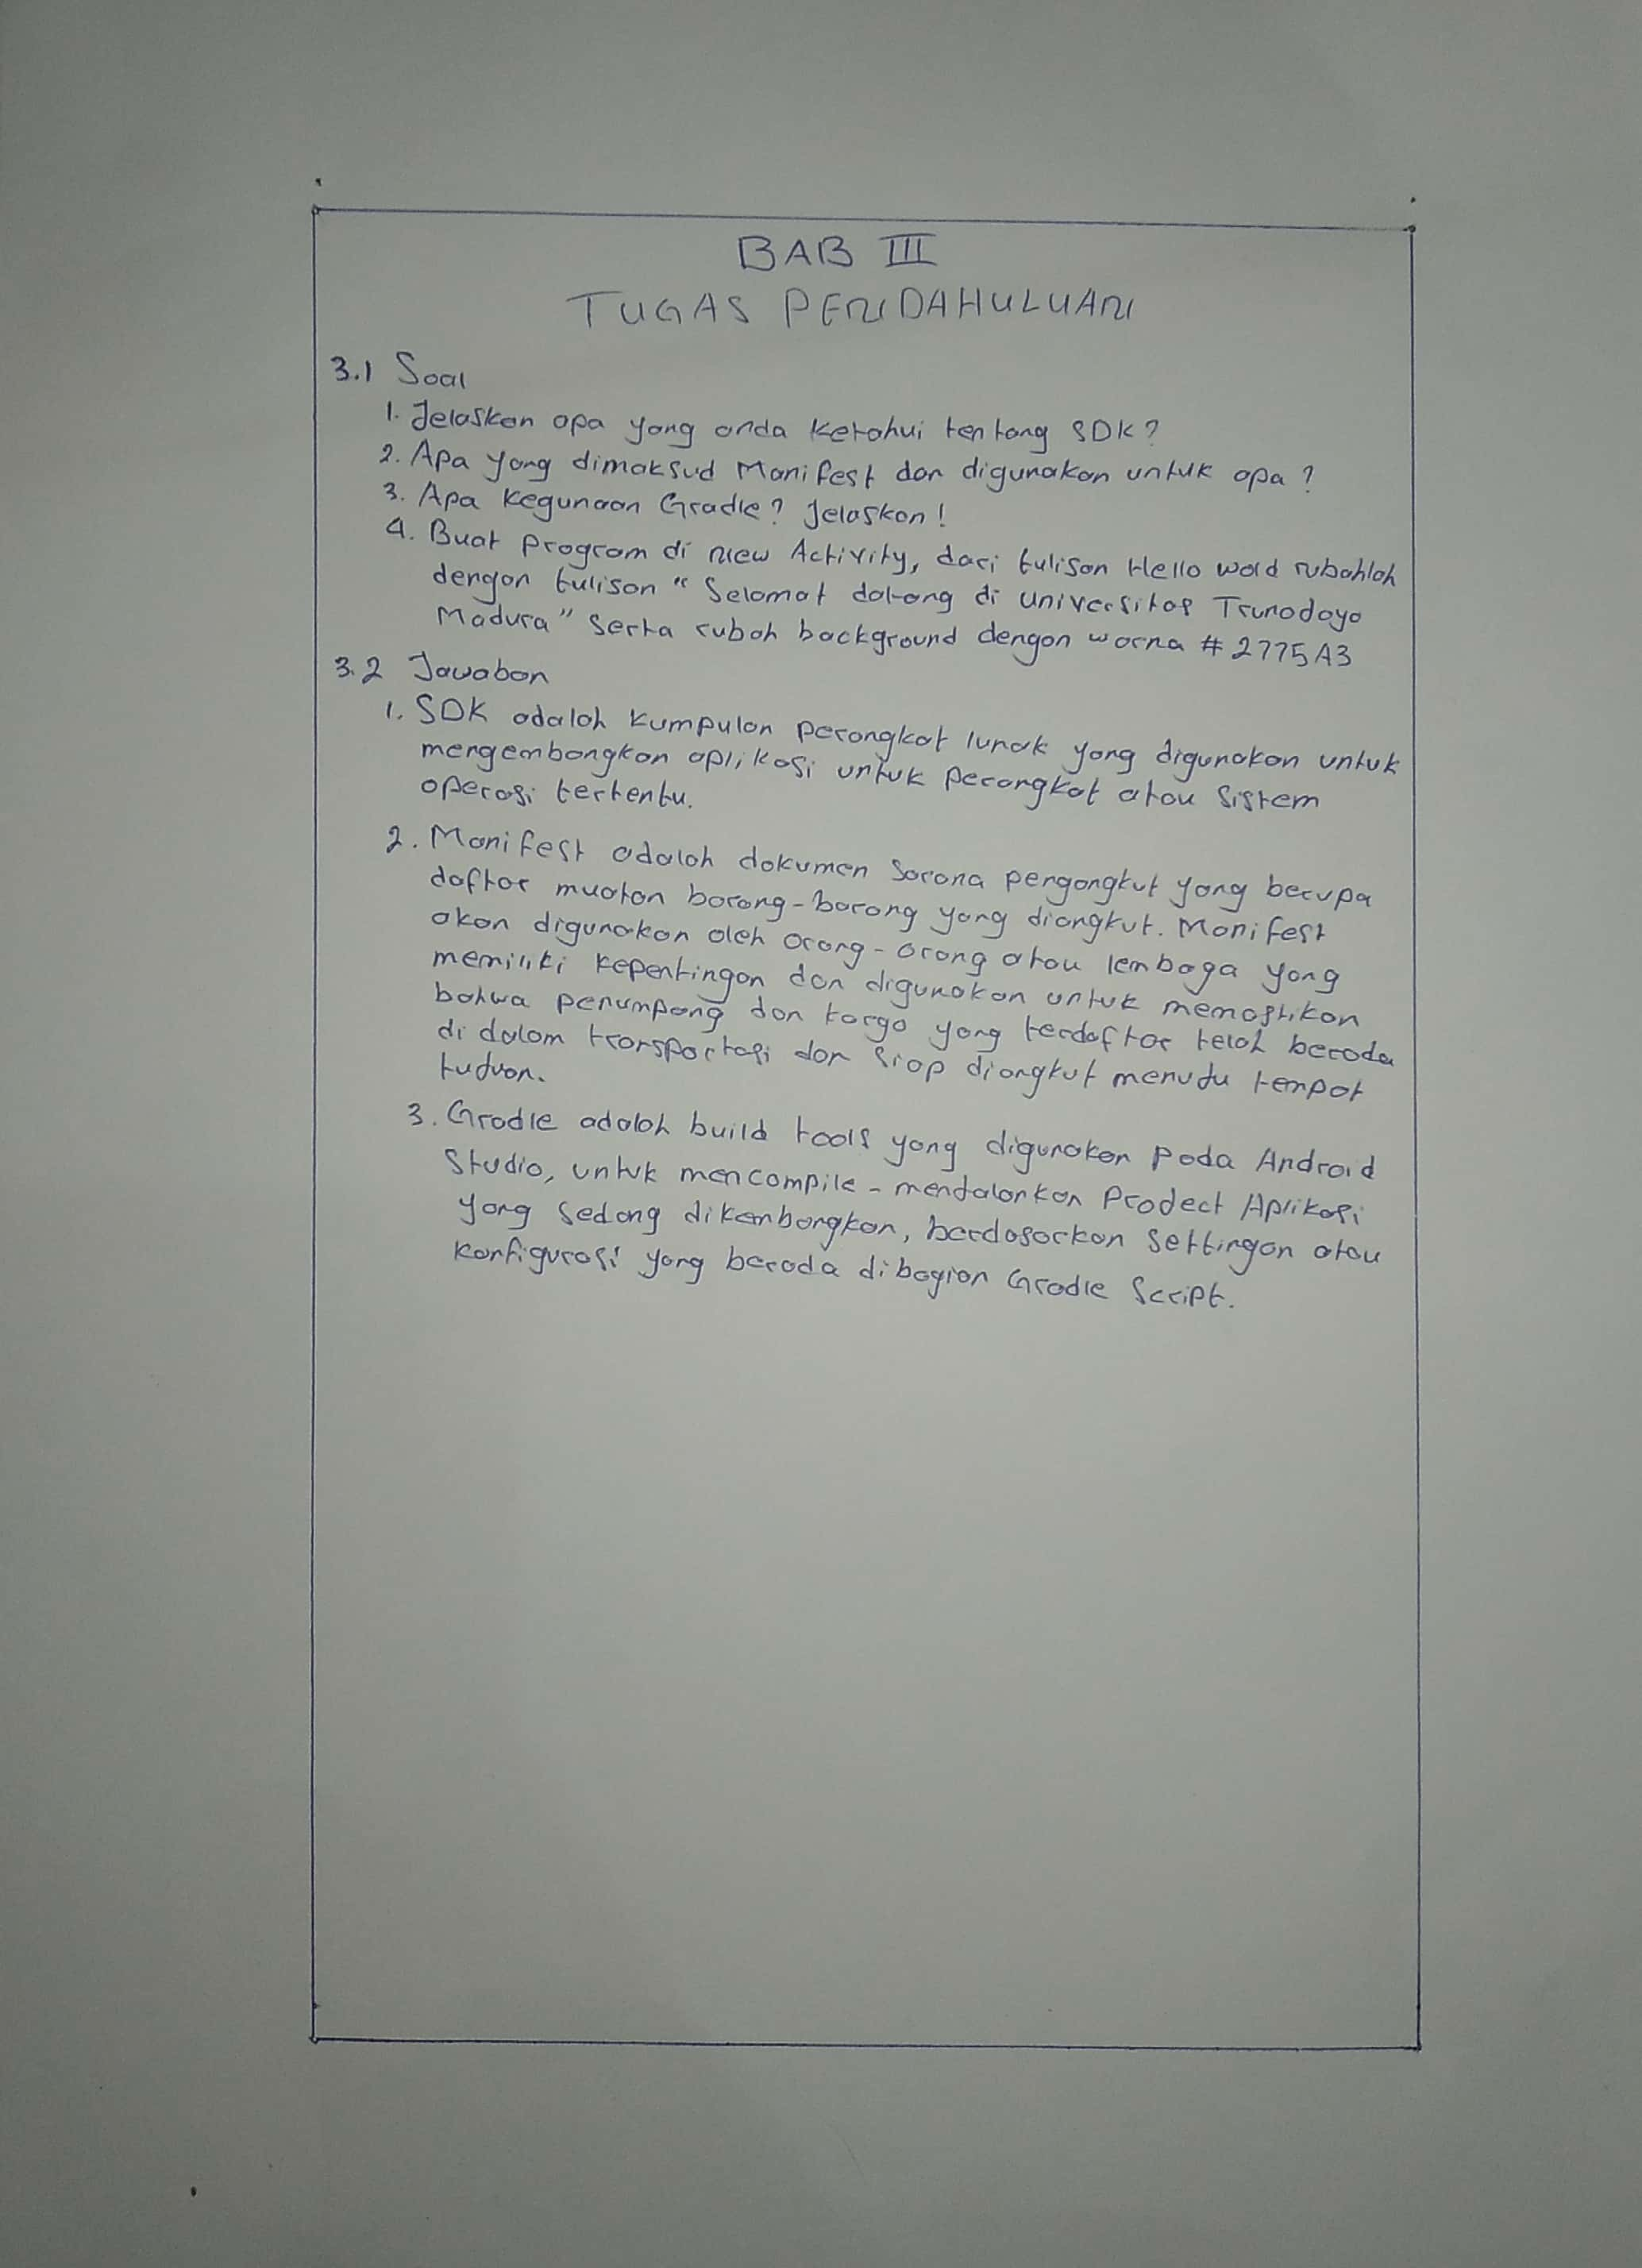 BAB III
TUGAS PENDAHULUAN
3.1 Soal
1. Jelaskan apa yang anda ketahui tentang SDK?
2. Apa yang dimaksud Manifest dan digunakan untuk apa?
3. Apa kegunaan Gradle? Jelaskan!
4. Buat program di new Activity, dari tulisan Hello wold rubahlah
dengan tulisan "Selamat datang di universitas Trunodoyo
Madura" serta rubah background dengan warna #2775A3
3.2 Jawaban
1. SDK adalah kumpulan perangkat lunak yang digunakan untuk
mengembangkan aplikasi untuk perangkat atau sistem
operasi tertentu.
2. Manifest adalah dokumen sarana pengangkut yang berupa
daftar muatan barang-barang yang diangkut. Manifest
akan digunakan oleh orang-orang atau lembaga yang
memiliki kepentingan dan digunakan untuk memastikan
bahwa penumpang dan kargo yang terdaftar telah berada
di dalam transportasi dan siap diangkut menuju tempat
tujuan.
3. Gradle adalah build tools yang digunakan pada Android
Studio, untuk mencompile-menjalankan Project Aplikasi
yang sedang dikembangkan, berdasarkan settingan atau
konfigurasi yang berada dibagian Gradle Script.